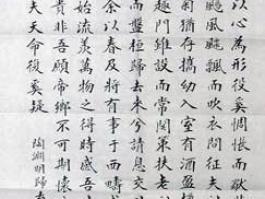 以心為形役奚惆悵而獨
颺風飄飄而吹衣問征夫
猶存攜幼入室有酒盈樽
趣門雖設而常關策扶老
而盤桓歸去來兮請息交
余以春及將有事于西疇
始流羨萬物之得時感吾
貴非吾願帝鄉不可期懷
夫天命復奚疑
陶淵明歸去